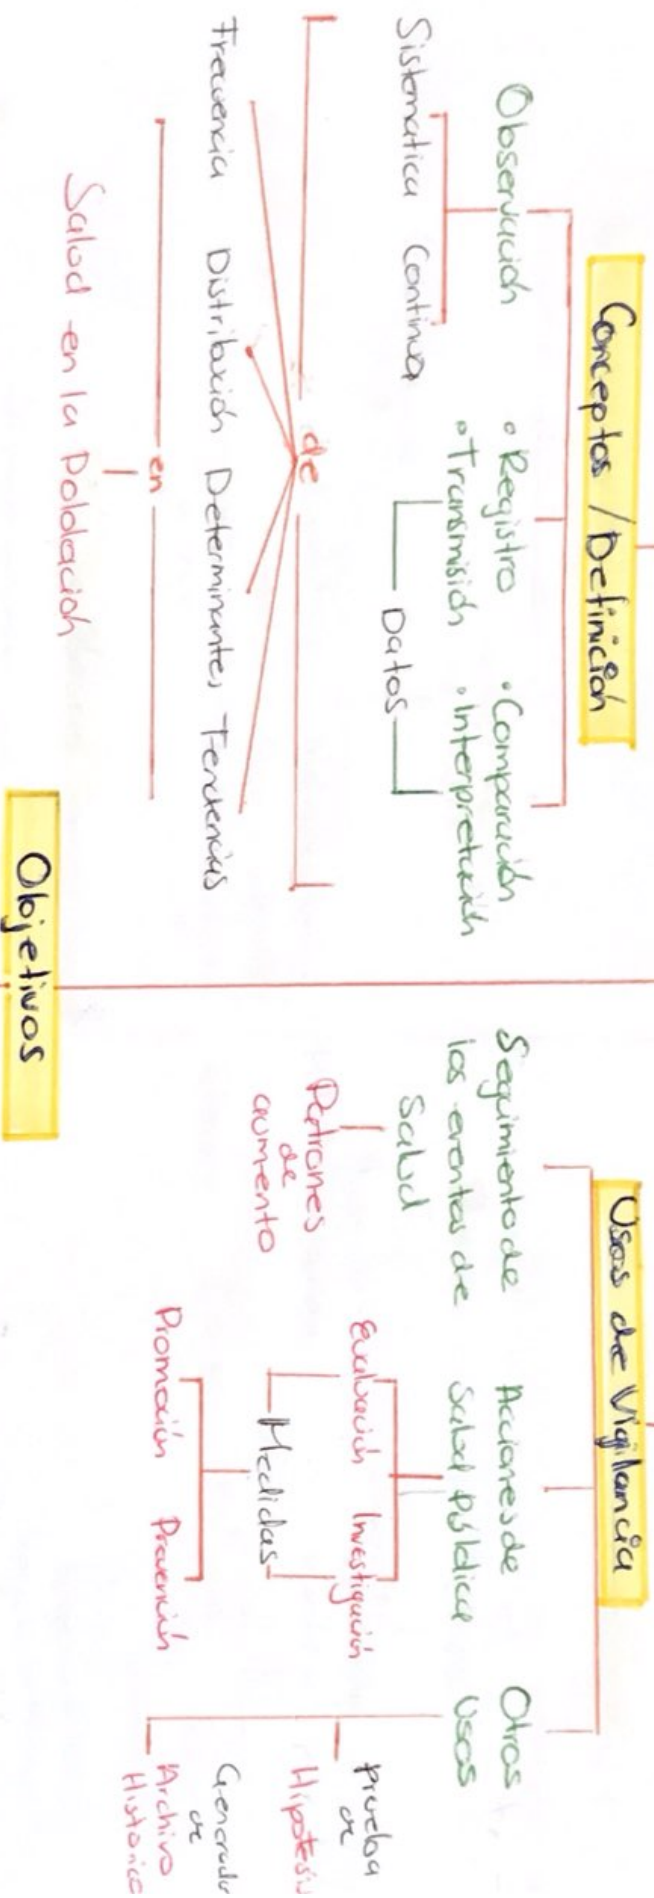 Conceptos / Definición
Observación
Sistematica Continua
• Registro
• Transmisión
• Comparación
• Interpretación
Datos
de
Frecuencia Distribución Determinantes Tendencias
en
Salud en la Población
Usos de Vigilancia
Seguimiento de
los eventos de
Salud
Patrones
de
aumento
Acciones de
Salud pública
Evaluación Investigación
Medidas
Promoción Prevención
Otros
Usos
Prueba
de
Hipotesis
Generador
de
Archivo
Historico
Objetivos